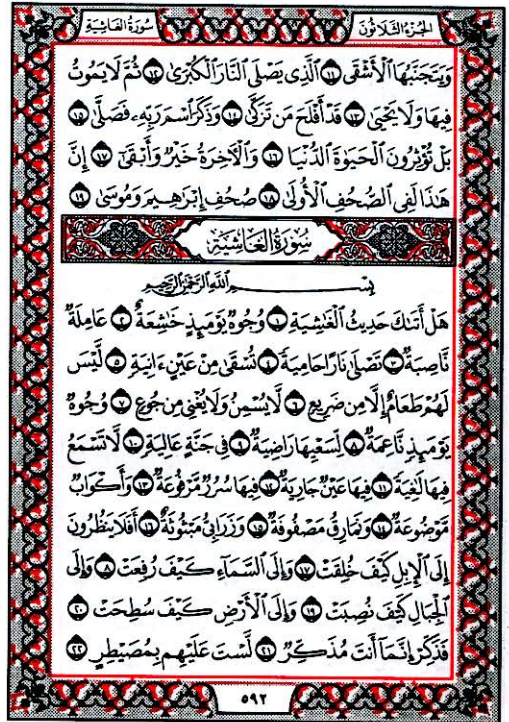 سورة الغاشية الجزء الثلاثون
وَيَتَجَنَّبُهَا ٱلْأَشْقَى ١١ ٱلَّذِى يَصْلَى ٱلنَّارَ ٱلْكُبْرَىٰ ١٢ ثُمَّ لَا يَمُوتُ
فِيهَا وَلَا يَحْيَىٰ ١٣ قَدْ أَفْلَحَ مَن تَزَكَّىٰ ١٤ وَذَكَرَ ٱسْمَ رَبِّهِۦ فَصَلَّىٰ ١٥
بَلْ تُؤْثِرُونَ ٱلْحَيَوٰةَ ٱلدُّنْيَا ١٦ وَٱلْءَاخِرَةُ خَيْرٌ وَأَبْقَىٰٓ ١٧ إِنَّ
هَٰذَا لَفِى ٱلصُّحُفِ ٱلْأُولَىٰ ١٨ صُحُفِ إِبْرَٰهِيمَ وَمُوسَىٰ ١٩
سُورَةُ الغَاشِيَةِ
بِسْمِ ٱللَّهِ ٱلرَّحْمَٰنِ ٱلرَّحِيمِ
هَلْ أَتَىٰكَ حَدِيثُ ٱلْغَٰشِيَةِ ١ وُجُوهٌ يَوْمَئِذٍ خَٰشِعَةٌ ٢ عَامِلَةٌ
نَّاصِبَةٌ ٣ تَصْلَىٰ نَارًا حَامِيَةً ٤ تُسْقَىٰ مِنْ عَيْنٍ ءَانِيَةٍ ٥ لَّيْسَ
لَهُمْ طَعَامٌ إِلَّا مِن ضَرِيعٍ ٦ لَّا يُسْمِنُ وَلَا يُغْنِى مِن جُوعٍ ٧ وُجُوهٌ
يَوْمَئِذٍ نَّاعِمَةٌ ٨ لِّسَعْيِهَا رَاضِيَةٌ ٩ فِى جَنَّةٍ عَالِيَةٍ ١٠ لَّا تَسْمَعُ
فِيهَا لَٰغِيَةً ١١ فِيهَا عَيْنٌ جَارِيَةٌ ١٢ فِيهَا سُرُرٌ مَّرْفُوعَةٌ ١٣ وَأَكْوَابٌ
مَّوْضُوعَةٌ ١٤ وَنَمَارِقُ مَصْفُوفَةٌ ١٥ وَزَرَابِىُّ مَبْثُوثَةٌ ١٦ أَفَلَا يَنظُرُونَ
إِلَى ٱلْإِبِلِ كَيْفَ خُلِقَتْ ١٧ وَإِلَى ٱلسَّمَآءِ كَيْفَ رُفِعَتْ ١٨ وَإِلَى
ٱلْجِبَالِ كَيْفَ نُصِبَتْ ١٩ وَإِلَى ٱلْأَرْضِ كَيْفَ سُطِحَتْ ٢٠
فَذَكِّرْ إِنَّمَآ أَنتَ مُذَكِّرٌ ٢١ لَّسْتَ عَلَيْهِم بِمُصَيْطِرٍ ٢٢
٥٩٢